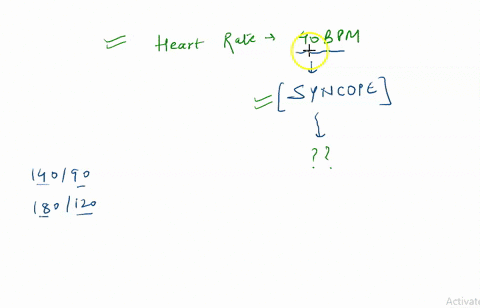 Heart Rate → 40 BPM
[SYNCOPE]
??
140/90
180/120
Activate